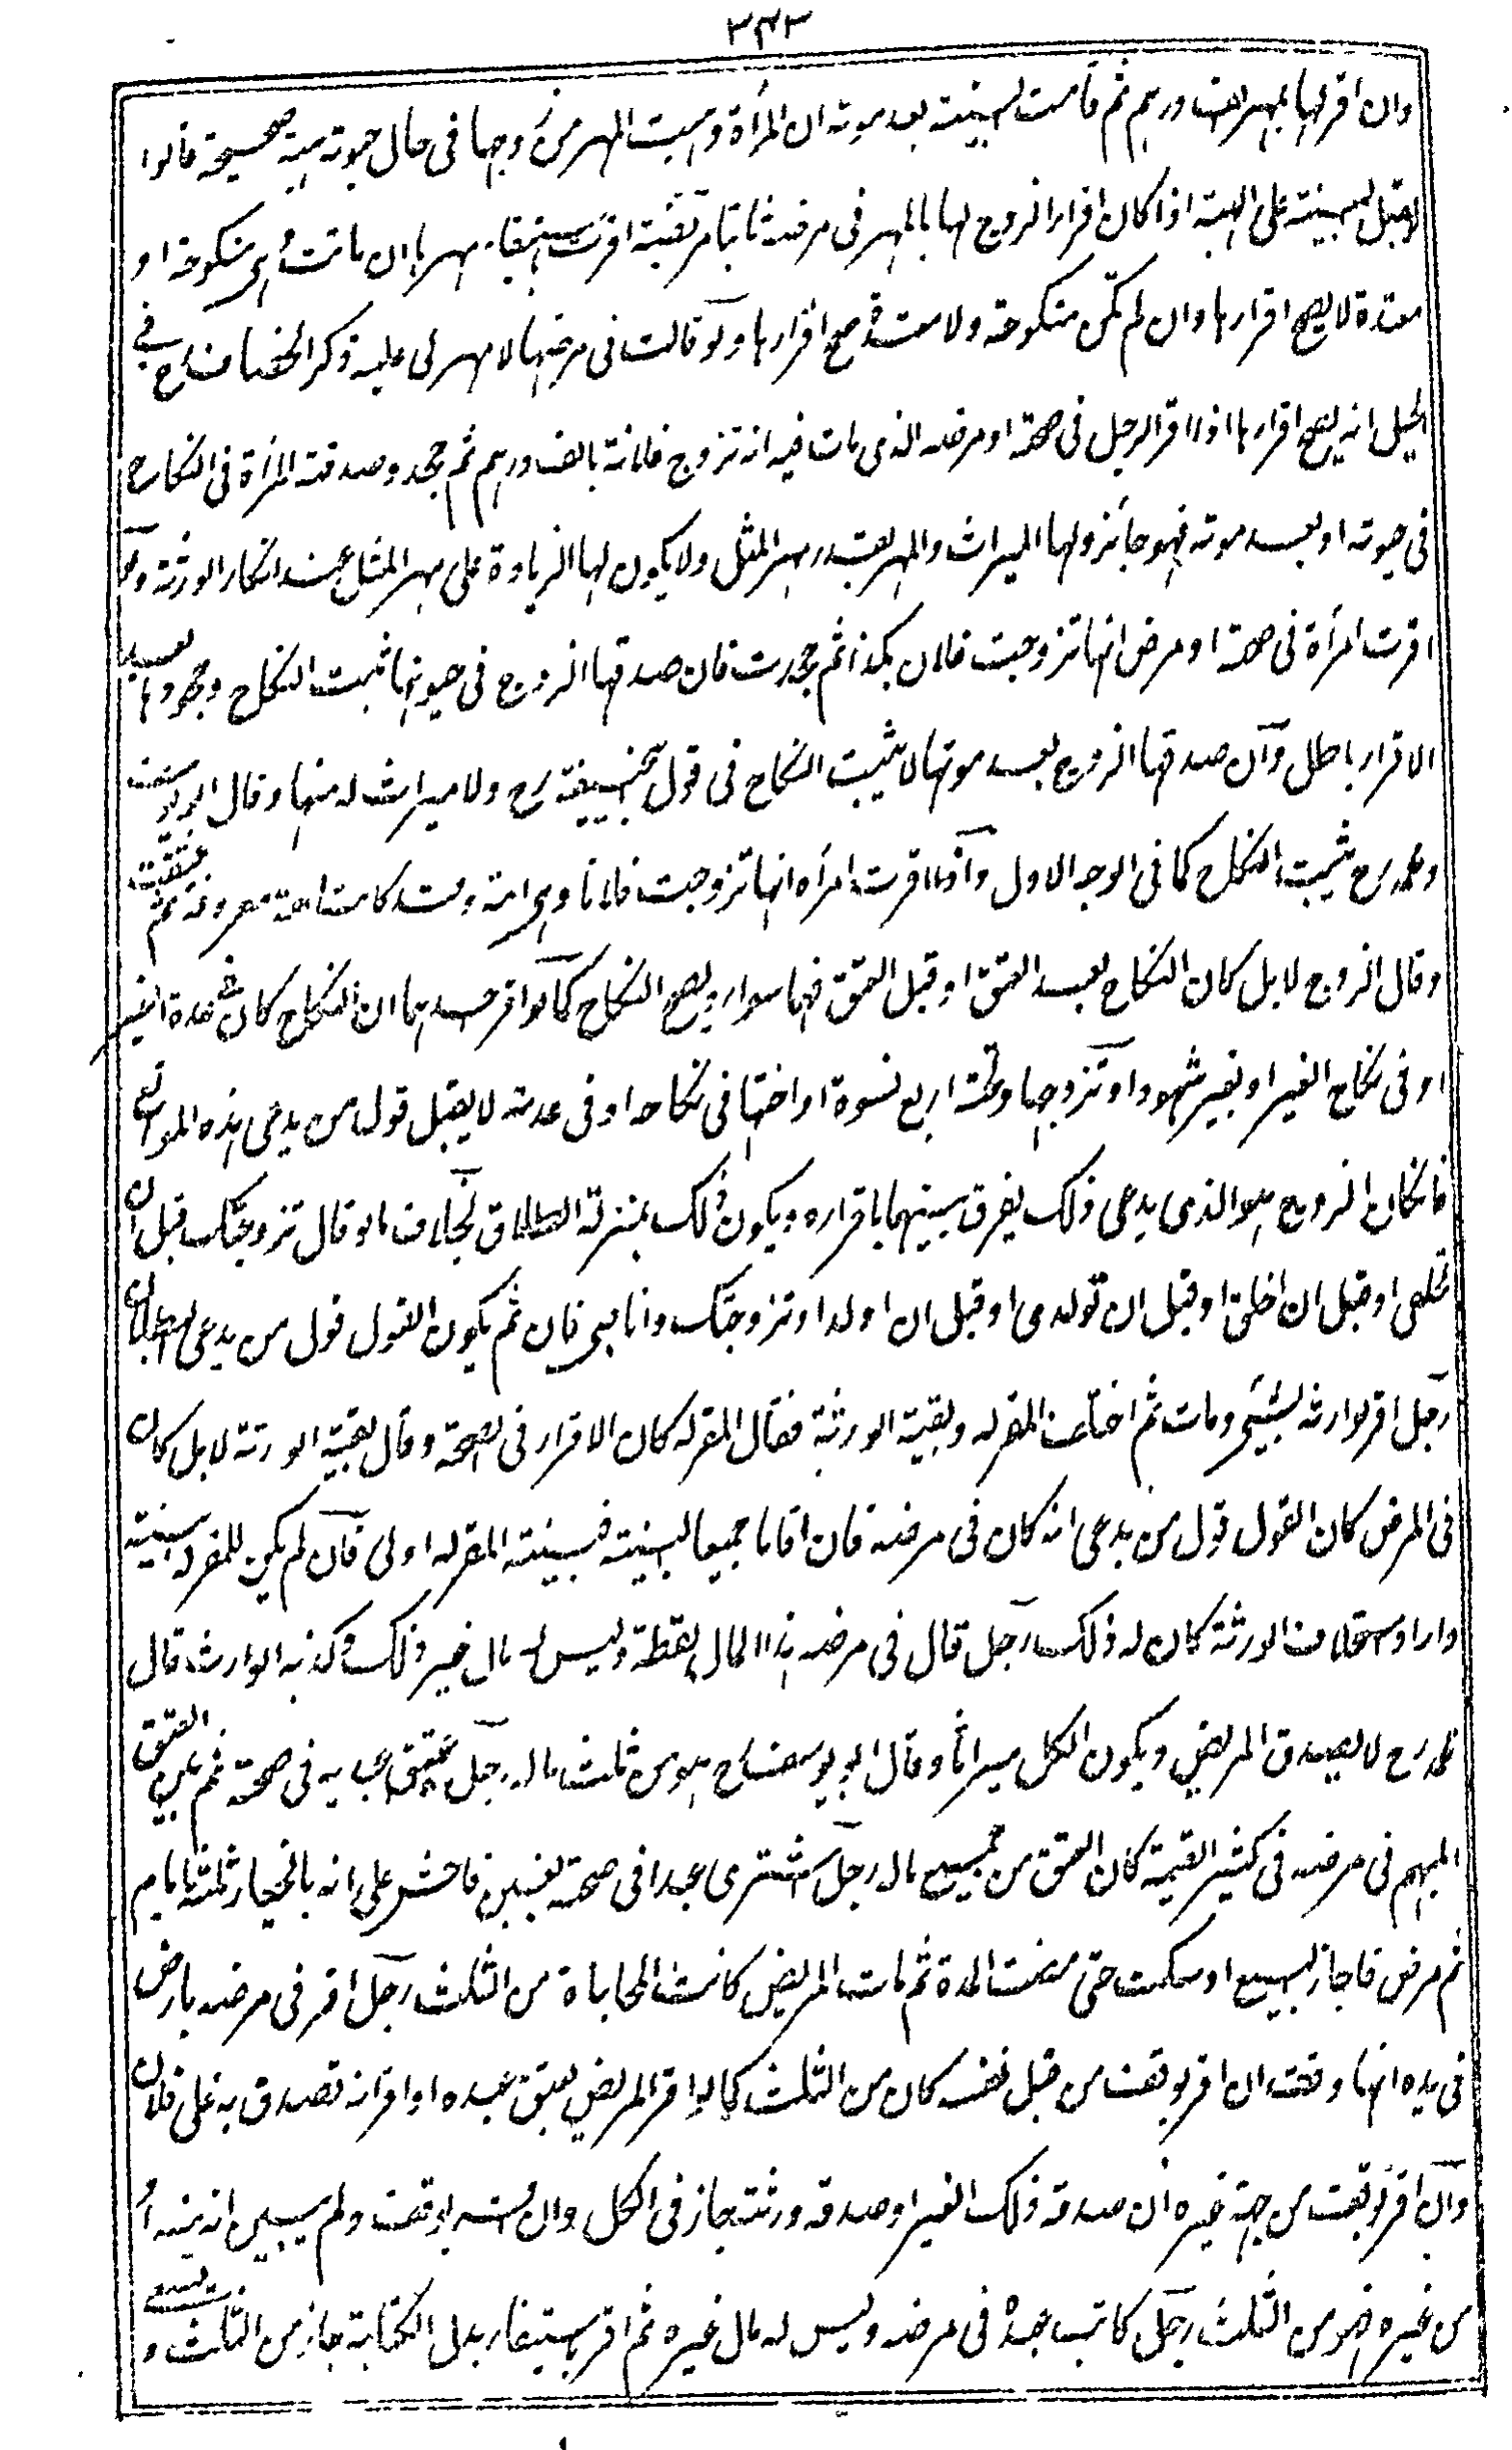 ٣٤٣
وان اقر لها بمهر الف درهم ثم قامت البينة بعد موته ان المرأة وهبت المهر من زوجها في حال حيوته هبة صحيحة قالوا
لا تقبل البينة على الهبة اذا كان اقرار الزوج لها بالمهر في مرضه ثابتا مريضة اقرت باستيفاء مهرها ان ماتت وهي منكوحة او
معتدة لا يصح اقرارها وان لم تكن منكوحة ولا معتدة صح اقرارها ولو قالت في مرضها لا مهر لي عليه ذكر الخصاف رح في
الحيل انه يصح اقرارها اذا اقر الرجل في صحته او مرضه الذي مات فيه انه تزوج فلانة بالف درهم ثم جحد وصدقته المرأة في النكاح
في حيوته او بعد موته فهو جائز ولها الميراث والمهر بقدر مهر المثل ولا يكون لها الزيادة على مهر المثل عند انكار الورثة ولو
اقرت المرأة في صحة او مرض انها تزوجت فلان بكذا ثم جحدت فان صدقها الزوج في حيوتها ثبت النكاح وجحودها بعد
الاقرار باطل وان صدقها الزوج بعد موتها لا يثبت النكاح في قول ابي حنيفة رح ولا ميراث له منها وقال ابو يوسف
ومحمد رح يثبت النكاح كما في الوجه الاول واذا اقرت امرأه انها تزوجت فلانا وهي امة وقد كانت امة معروفة ثم عتقت
وقال الزوج لا بل كان النكاح بعد العتق او قبل العتق فهما سواء ويصح النكاح كما لو اقر احدهما ان النكاح كان في عدة الغير
او في نكاح الغير او بغير شهود او تزوجها وتحته اربع نسوة او اختها في نكاحه او في عدته لا يقبل قول من يدعي هذه الموانع
فان كان الزوج هو الذي يدعي ذلك يفرق بينهما باقراره ويكون ذلك بمنزلة الطلاق بخلاف ما لو قال تزوجتك قبل ان
تخلقي او قبل ان اخلق او قبل ان تولدي او قبل ان اولد او تزوجتك وانا صبي فان ثم يكون القول قول من يدعي البطلان
رجل اقر لوارثه بشيء ومات ثم اختلف المقر له وبقية الورثة فقال المقر له كان الاقرار في الصحة وقال بقية الورثة لا بل كان
في المرض كان القول قول من يدعي انه كان في مرضه فان اقاما جميعا البينة فبينة المقر له اولى فان لم يكن للمقر له بينة
واراد استحلاف الورثة كان له ذلك رجل قال في مرضه هذا المال لقطة وليس له مال غير ذلك وكذبه الوارث قال
محمد رح لا يصدق المريض ويكون الكل ميراثا وقال ابو يوسف رح هو من ثلث ماله رجل عتيق عبديه في صحته ثم بين العتق
المبهم في مرضه في كثير القيمة كان العتق من جميع ماله رجل اشترى عبدا في صحته بغبن فاحش على انه بالخيار ثلثة ايام
ثم مرض فاجاز البيع او سكت حتى مضت المدة ثم مات المريض كانت المحاباة من الثلث رجل اقر في مرضه بارض
في يده انها وقف ان اقر بوقف من قبل نفسه كان من الثلث كما لو اقر المريض بعتق عبده او اقر انه تصدق به على فلان
وان اقر بوقف من جهة غيره ان صدقه ذلك الغير او صدقه ورثته جاز في الكل وان اقر بوقف ولم يبين انه منه او
من غيره فهو من الثلث رجل كاتب عبده في مرضه وليس له مال غيره ثم اقر باستيفاء بدل الكتابة جاز من الثلث و يسعى